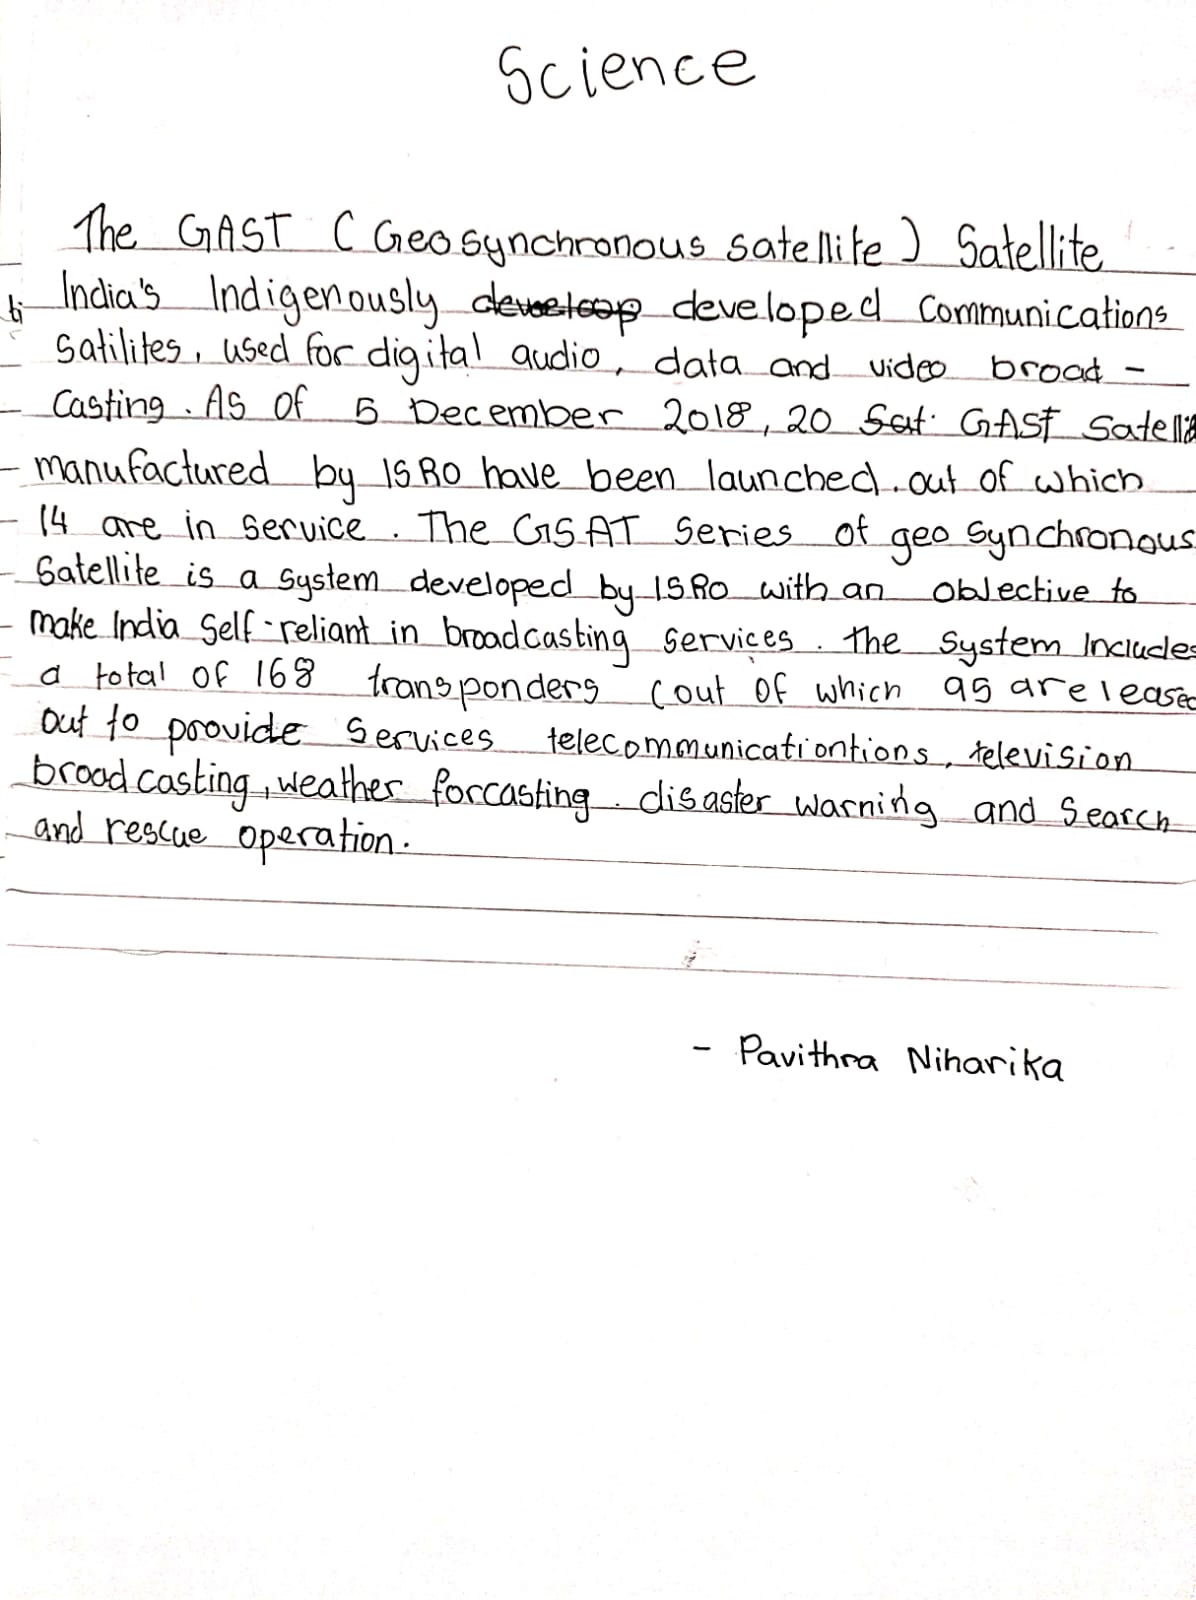 Science
The GAST ( Geosynchronous satellite ) Satellite
India's Indigenously developed Communications
Satilites, used for digital audio, data and video broad -
casting. As of 5 December 2018, 20 GAST Satelli
manufactured by ISRO have been launched. out of which
14 are in service. The GSAT Series of geo synchronous
Satellite is a system developed by ISRO with an objective to
make India Self-reliant in broadcasting services. the system Includes
a total of 168 transponders (out of which 95 are leased
out to provide Services telecommunicationtions, television
broadcasting, weather forcasting. disaster warning and Search
and rescue operation.
- Pavithra Niharika